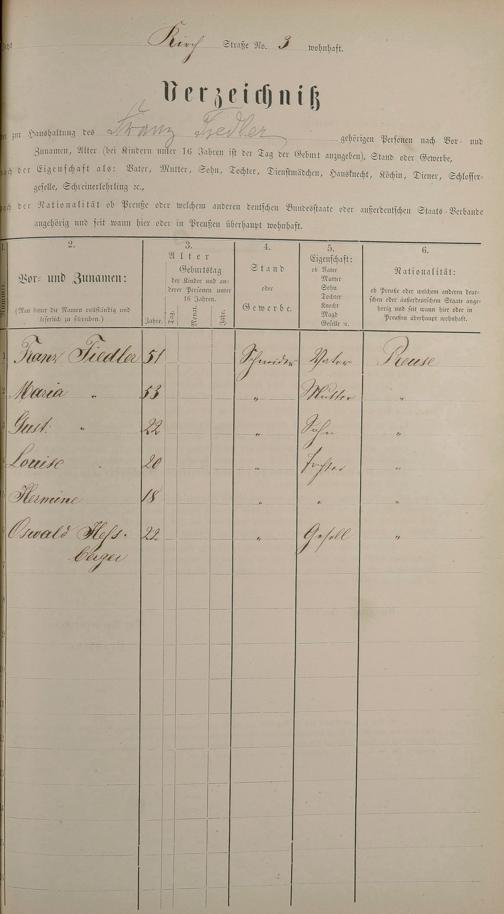 Kirch Straße No. 3 wohnhaft.
Verzeichniß
zur Haushaltung des Franz Fiedler gehörigen Personen nach Vor- und
Zunamen, Alter (bei Kindern unter 16 Jahren ist der Tag der Geburt anzugeben), Stand oder Gewerbe,
nach der Eigenschaft als: Vater, Mutter, Sohn, Tochter, Dienstmädchen, Hausknecht, Köchin, Diener, Schlosser-
geselle, Schreinerlehrling ꝛc.,
nach der Nationalität ob Preuße oder welchem anderen deutschen Bundesstaate oder außerdeutschen Staats-Verbande
angehörig und seit wann hier oder in Preußen überhaupt wohnhaft.
1. 2. 3. 4. 5. 6.
Nummer.
Vor- und Zunamen:
(Man bittet die Namen vollständig und
leserlich zu schreiben.)
Alter
Geburtstag
der Kinder und an-
derer Personen unter
16 Jahren.
Jahre. Tag. Monat. Jahr.
Stand
oder
Gewerbe.
Eigenschaft:
ob Vater
Mutter
Sohn
Tochter
Knecht
Magd
Geselle ꝛc.
Nationalität:
ob Preuße oder welchem anderen deut-
schen oder außerdeutschen Staate ange-
hörig und seit wann hier oder in
Preußen überhaupt wohnhaft.
1 Franz Fiedler 51 Schneider Vater Preuse
2 Maria " 53 " Mutter "
3 Gust. " 22 " Sohn "
4 Louise " 20 " Tochter "
5 Hermine 18 " " "
6 Oswald Hess- 22 " Gesell "
berger